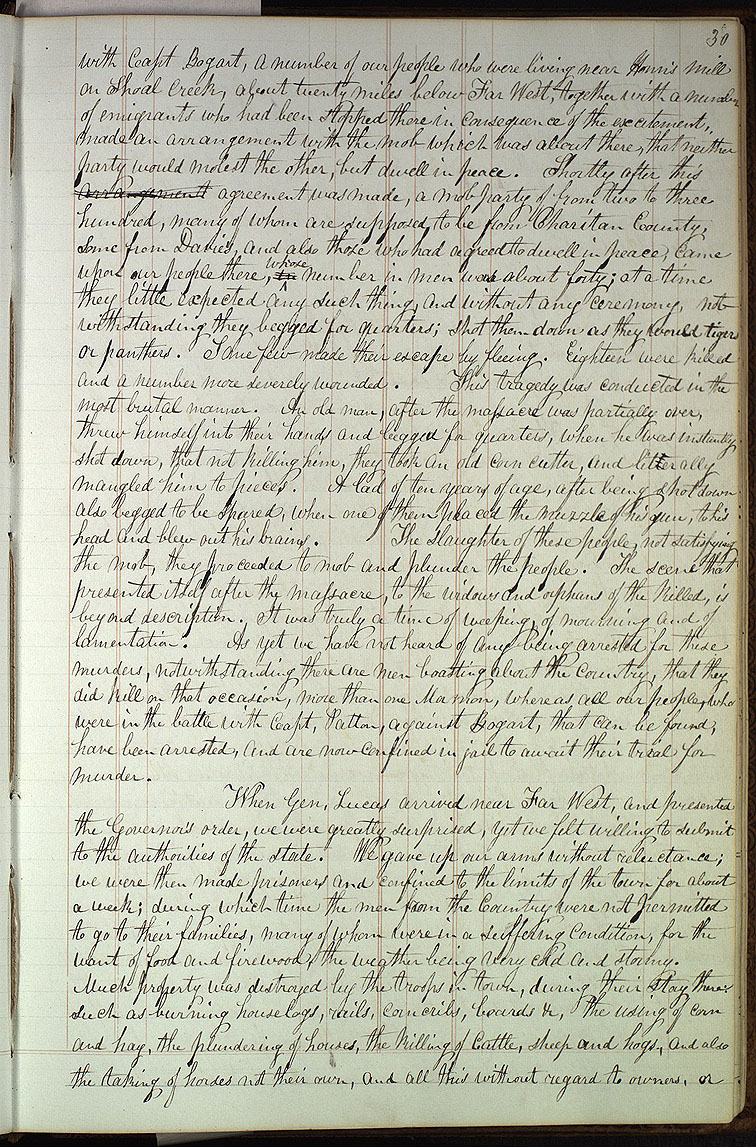 30
with Capt Bogart, a number of our people who were living near Hann's mill
on Shoal Creek, about twenty miles below Far West, together with a number
of emigrants who had been stopped there in consequence of the excitement,
made an arrangement with the mob which was about there, that neither
party would molest the other, but dwell in peace. Shortly after this
arrangement agreement was made, a mob party of from two to three
hundred, many of whom are supposed to be from Chariton County,
Some from Davies, and also those who had agreed to dwell in peace, came
upon our people there, whose in number in men was about forty; at a time
they little expected any such thing, and without any ceremony, not-
withstanding they begged for quarters; shot them down as they would tigers
or panthers. Some few made their escape by fleeing. Eighteen were killed
and a number more severely wounded. This tragedy was conducted in the
most brutal manner. An old man, after the massacre was partially over,
threw himself into their hands and begged for quarters, when he was instantly
shot down, that not killing him, they took an old corn cutter, and litterally
mangled him to pieces. A lad of ten years of age, after being shot down
also begged to be spared, when one of them placed the muzzle of his gun, to his
head and blew out his brains. The slaughter of these people, not satisfying
the mob, they proceeded to mob and plunder the people. The scene that
presented itself after the massacre, to the widows and orphans of the killed, is
beyond description. It was truly a time of weeping, of mourning and of
lamentation. As yet we have not heard of any being arrested for these
murders, notwithstanding there are men boasting about the Country, that they
did kill on that occasion, more than one Mormon, whereas, all our people, who
were in the battle with Capt, Patton, against Bogart, that can be found,
have been arrested, and are now confined in jail to await their trial for
murder.
When Gen, Lucas arrived near Far West, and presented
the Governor's order, we were greatly surprised, yet we felt willing to submit
to the authorities of the state. We gave up our arms without reluctance;
we were then made prisoners and confined to the limits of the town for about
a week; during which time the men from the Country were not permitted
to go to their families, many of whom were in a suffering condition, for the
want of food and firewood, the weather being very cold and stormy.
Much property was distroyed by the troops in town, during their stay there;
such as burning house logs, rails, corncribs, boards &c, the using of corn
and hay, the plundering of houses, the killing of Cattle, sheep and hogs, and also
the taking of horses not their own, and all this without regard to owners, or